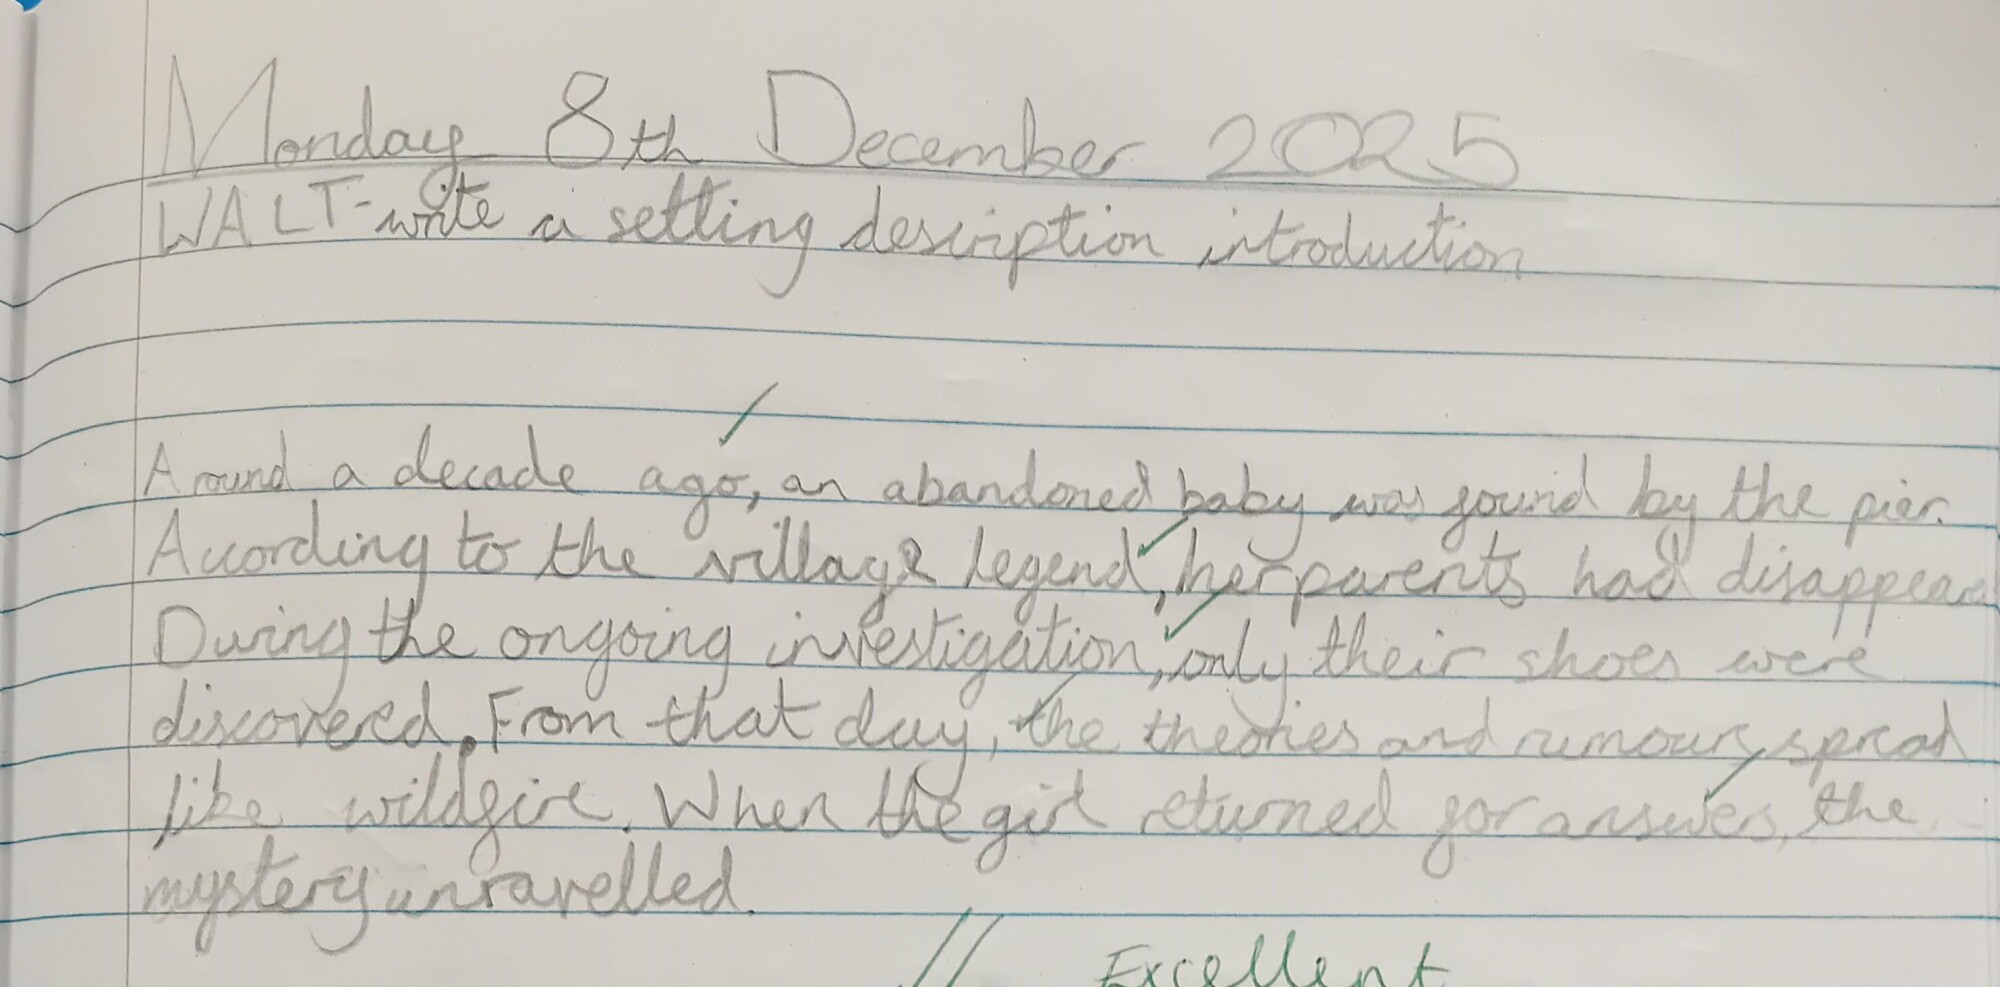 Monday 8th December 2025
WALT-write a setting description introduction
Around a decade ago, an abandoned baby was found by the pier.
According to the village legend, her parents had disappear
During the ongoing investigation, only their shoes were
discovered. From that day, the theories and rumours spread
like wildfire. When the girl returned for answers, the
mystery unravelled.
Excellent